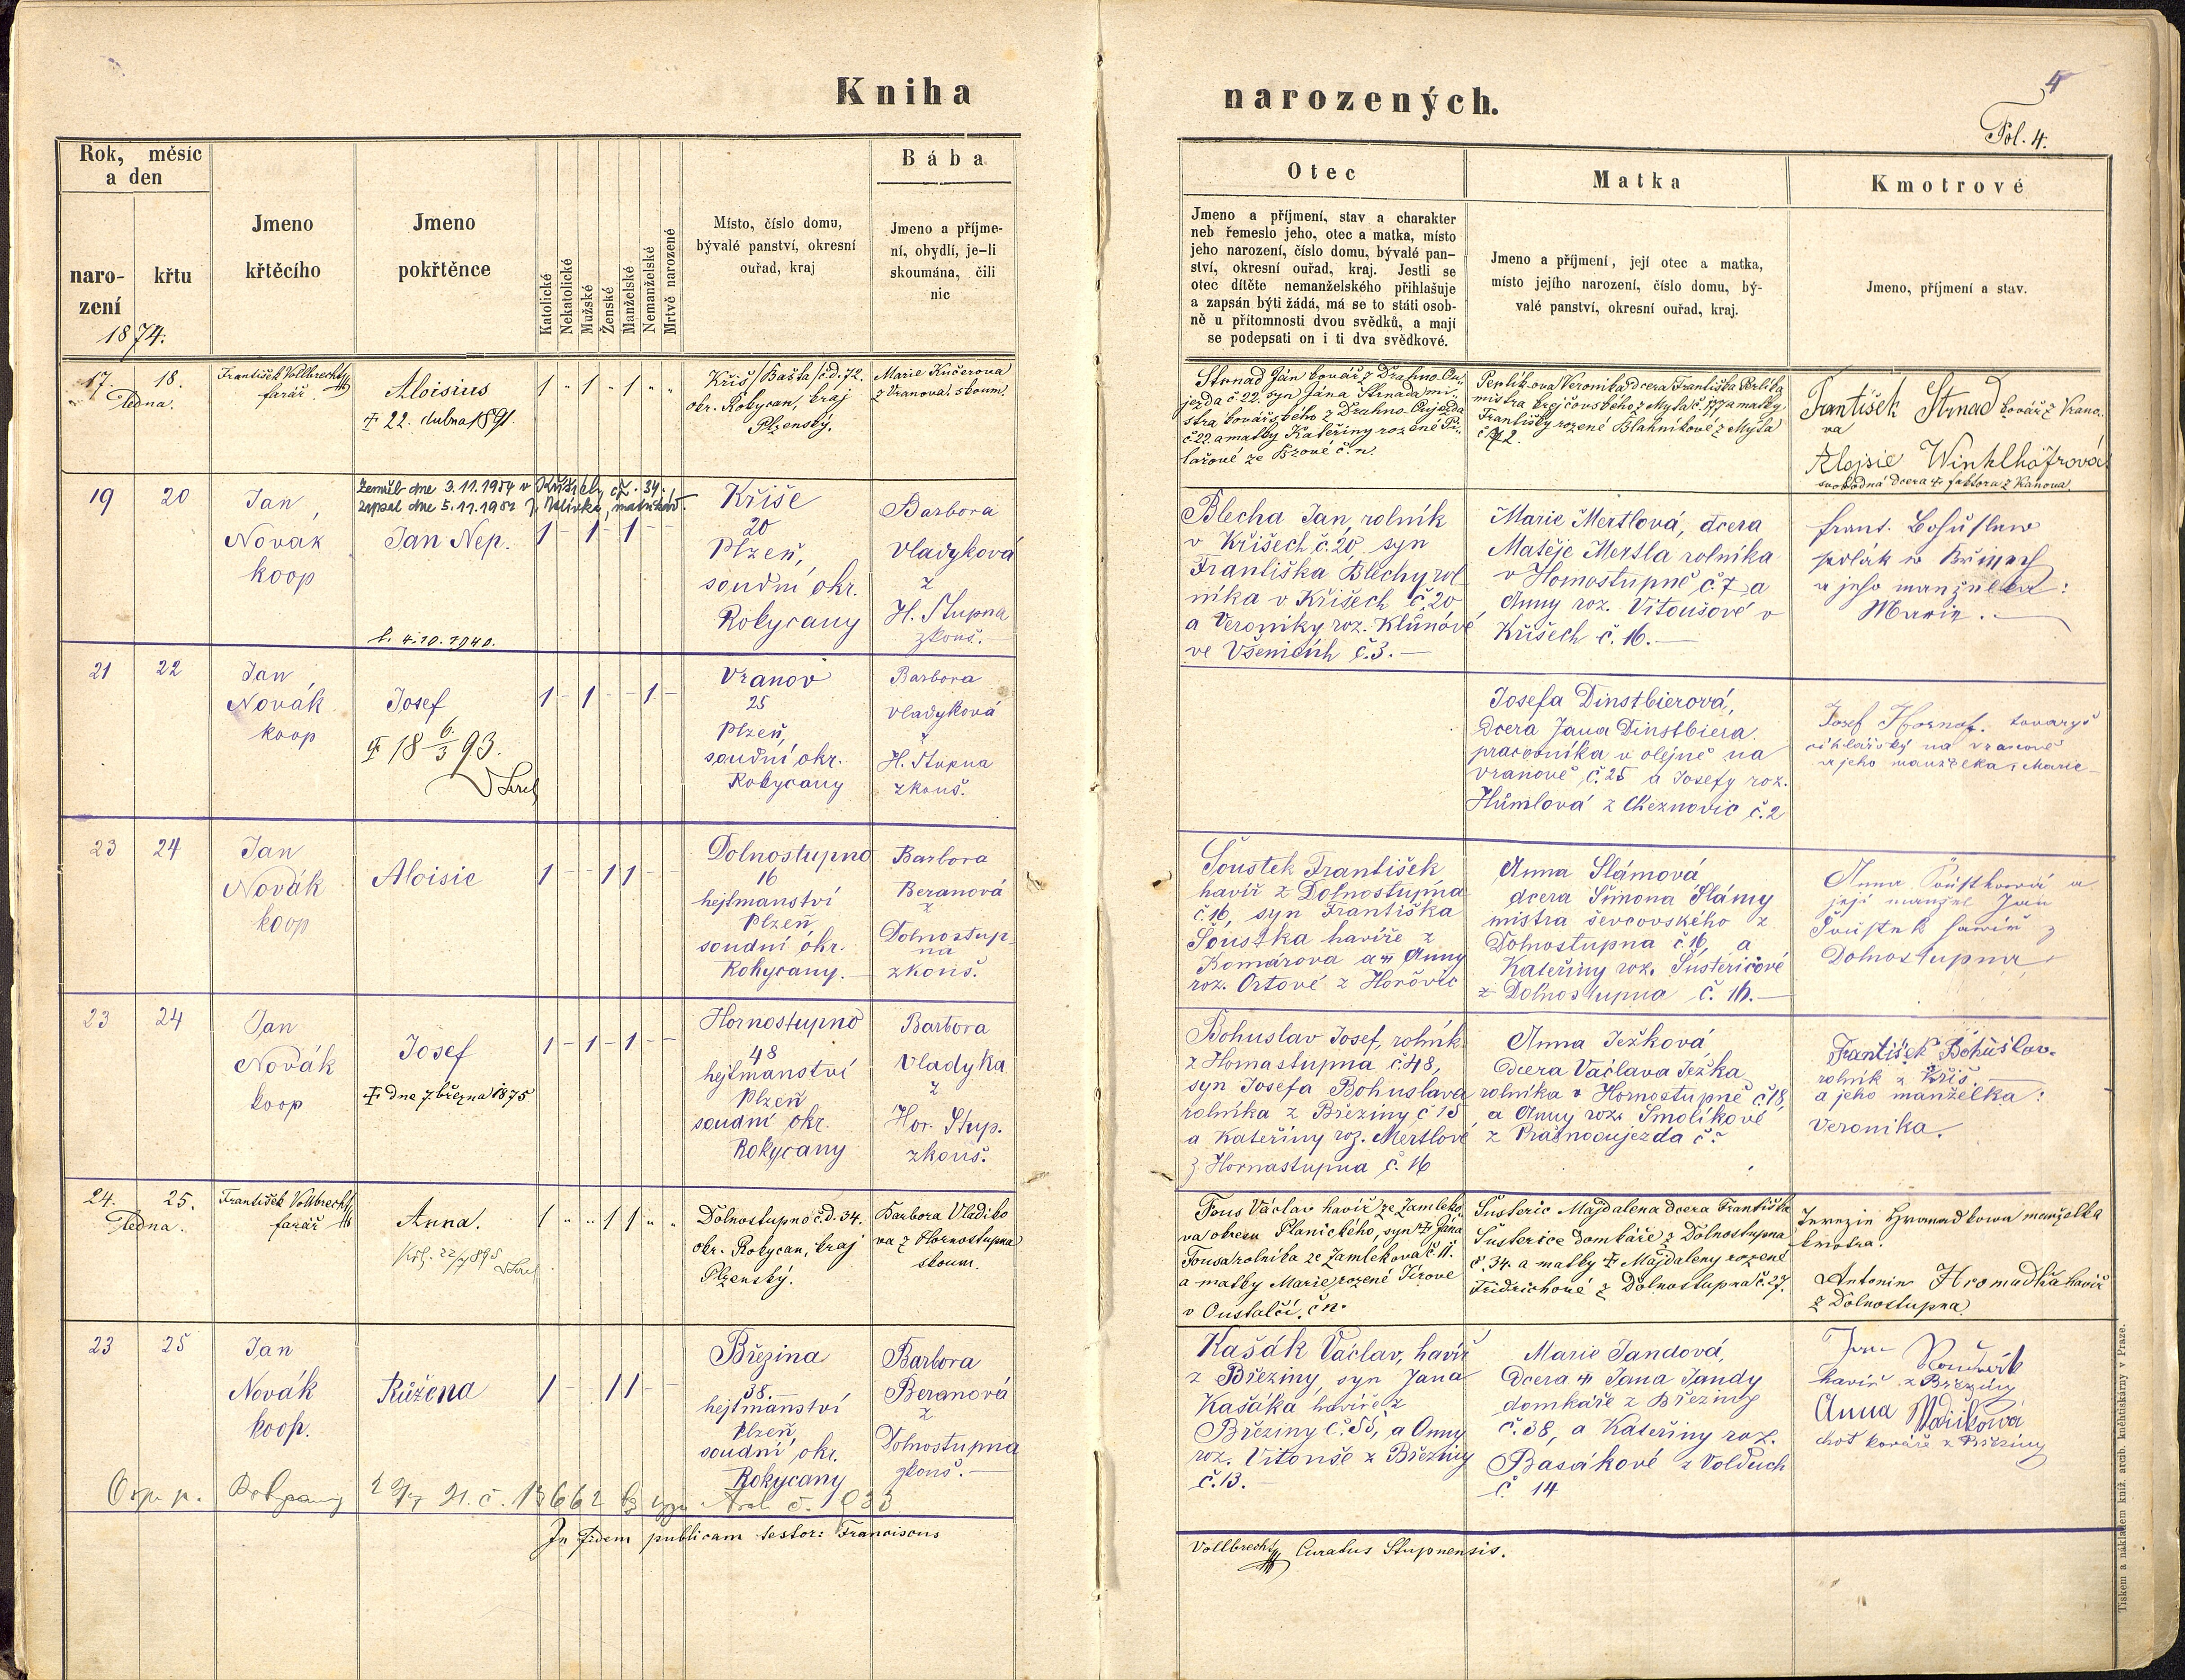 Kniha narozených.
4
Fol. 4.
Rok, měsíc a den
narození
křtu
1874.
Jmeno křtěcího
Jmeno pokřtěnce
Katolické
Nekatolické
Mužské
Ženské
Manželské
Nemanželské
Mrtvě narozené
Místo, číslo domu,
bývalé panství, okresní
ouřad, kraj
Bába
Jmeno a příjme-
ní, obydlí, je-li
skoumána, čili
nic
Otec
Jmeno a příjmení, stav a charakter
neb řemeslo jeho, otec a matka, místo
jeho narození, číslo domu, bývalé pan-
ství, okresní ouřad, kraj. Jestli se
otec dítěte nemanželského přihlašuje
a zapsán býti žádá, má se to státi osob-
ně u přítomnosti dvou svědků, a mají
se podepsati on i ti dva svědkové.
Matka
Jmeno a příjmení, její otec a matka,
místo jejího narození, číslo domu, bý-
valé panství, okresní ouřad, kraj.
Kmotrové
Jmeno, příjmení a stav.
17. 18.
Ledna.
František Vollbrecht
farář.
Aloisius
† 22. dubna 1891.
1 " 1 " 1 " "
Kříš /Bašta/ č.d. 72.
okr. Rokycan, kraj
Plzenský.
Marie Kučerova
z Vranova. skoum.
Strnad Ján kovář z Drahno-Ou-
jezda č 22. syn Jána Strnada mi-
stra kovářského z Drahno-Oujezda
č 22. a matky Kateřiny rozené
ze č. n.
Veronika dcera Františka
mistra krejčovského z Myta č. 177 a matky
Františky rozené Blahníkové z Myta
František Strnad kovář z Vrano-
va
Alojsie Winklhöfrová
svobodná dcera † faktora z Vranova
19 20
Jan
Novák
koop
Zemřel dne 3.11.1954 v
zapsal dne 5.11.1954
Jan Nep.
1 - 1 - 1
b. 4.10.1940.
Kříše
20
Plzeň,
soudní okr.
Rokycany
Barbora
Vladyková
z
H. Stupna
zkouš.
Blecha Jan, rolník
v Kříšech č. 20, syn
Františka Blechy rol
níka v Kříšech č. 20
a Veroniky roz. Klůnové
ve Všenicích č. 3. —
Marie Mertlová, dcera
Matěje Mertla rolníka
v Hornostupně č. 7 a
Anny roz. Vitoušové v
Kříšech č. 16. —
Frant. Bohuslaw
sedlák w
a jeho manželka:
Marie. —
21 22
Jan
Novák
koop
Josef
† 18 6/3 93.
1 - 1 - - 1 -
Vranov
25
Plzeň,
soudní okr.
Rokycany
Barbora
Vladyková
z
H. Stupna
zkouš.
Josefa Dinstbierová,
dcera Jana Dinstbiera
pracovníka v olejně na
Vranově č. 25 a Josefy roz.
Hůmlová z Cheznovic č. 2
Josef tovaryš
na Vranově
a jeho manželka, Marie
23 24
Jan
Novák
koop
Aloisie
1 - - 1 1
Dolnostupno
16
hejtmanství
Plzeň
soudní okr.
Rokycany. —
Barbora
Beranová
z
Dolnostup-
na
zkouš.
Šoustek František
havíř z Dolnostupna
č. 16, syn Františka
Šoustka havíře z
Komárova a † Anny
roz. Ortové z Hořovic
Anna Slámová
dcera Šimona Slámy
mistra ševcovského z
Dolnostupna č. 16, a
Kateřiny roz. Šusteričové
z Dolnostupna č. 16. —
Anna a
její manžel Jan
havíř z
Dolnostupna
23 24
Jan
Novák
koop
Josef
† dne 7. března 1875
1 - 1 - 1 - -
Hornostupno
48
hejtmanství
Plzeň
soudní okr.
Rokycany
Barbora
Vladyka
z
Hor. Stup.
zkouš.
Bohuslav Josef, rolník
z Hornastupna č. 48,
syn Josefa Bohuslava
rolníka z Březiny č 15
a Kateřiny roz. Mertlové
z Hornastupna č. 16
Anna Ježková,
dcera Václava Ježka
rolníka v Hornostupně č 18,
a Anny roz. Smolíkové
z
František Bohuslav
rolník z Kříš. —
a jeho manželka:
Veronika.
24. 25.
Ledna.
František Vollbrecht
farář
Anna.
1 " " 1 1 " "
Dolnostupno č.d. 34.
okr. Rokycan, kraj
Plzenský.
Barbora Vladiko
va z Hornostupna
skoum.
Fous Václav havíř ze Zamleko-
va okresu Planického, syn † Jána
Fousa rolníka ze Zamlekova č 11.
a matky Marie, rozené Jírove
v Oustalči. č n.
Šusteric Majdalena dcera Františka
Šusterice domkáře z Dolnostupna
č. 34. a matky † Majdaleny rozené
Fridrichové z Dolnostupna č. 27.
Terezie Hromadkowa manželka
kmotra.
Antonin Hromadka havíř
z Dolnostupna
23 25
Jan
Novák
koop.
Růžena
1 - - 1 1 - -
Březina
38. —
hejtmanství
Plzeň,
soudní okr.
Rokycany
Barbora
Beranová
z
Dolnostupna
zkouš. —
Kašák Václav, havíř
z Březiny, syn Jana
Kašáka havíře z
Březiny č. 55, a Anny
roz. Vitouše z Březiny
č. 13.
Marie Jandová,
dcera † Jana Jandy
domkáře z Březiny
č. 38, a Kateřiny roz.
Basákové z Volduch
č. 14
Jan
havíř z Březiny
Anna
choť kováře z Březiny
In fidem publicam testor: Franciscus
Vollbrecht, Curatus Stupnensis.
Tiskem a nákladem kníž. arcib. knihtiskárny v Praze.